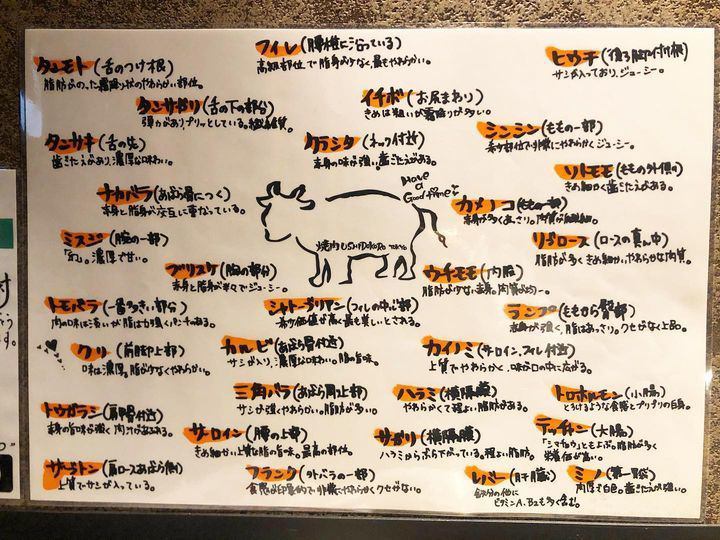 タンモト(舌のつけ根)
脂肪がのった霜降り状のやわらかい部位。
タンサガリ(舌の下の部分)
弾力があり、プリッとしている。
タンサキ(舌の先)
歯ごたえあり、濃厚な味わい。
フィレ(腰椎に沿っている)
高級部位で脂身が少なく、最もやわらかい。
イチボ(お尻まわり)
きめは粗いが霜降りが多い。
クラシタ(ネック付近)
赤身の味が強い。歯ごたえがある。
ヒウチ(後ろ脚の付け根)
サシが入っており、ジューシー。
シンシン(ももの一部)
希少部位で非常にやわらかくジューシー。
ソトモモ(ももの外側)
きめ細かく歯ごたえがある。
ナカバラ(あばら骨につく)
赤身と脂身が交互に重なっている。
カメノコ(ももの一部)
赤身が多くあっさり。
ミスジ(腕の一部)
濃厚で甘い。
リブロース(ロースの真ん中)
脂肪が多くきめ細かい、やわらかな肉質。
ブリスケ(胸の部分)
赤身と脂身が半々でジューシー。
Have
a
Good time
焼肉 USHIDOKORO
ウチモモ(内股)
脂肪が少ない赤身。
トモバラ(一番多きい部分)
肉の味は濃いが脂は力強くパンチのある。
シャトーブリアン(フィレの中心部)
希少価値が高く最も美しいとされる。
ランプ(ももから臀部)
赤身が強く、脂はあっさり。クセがなく上品。
クリ(前脚上部)
味は濃厚。脂が少なくやわらかい。
カルビ(あばら骨付近)
サシが入り、濃厚な味わい。脂の旨味。
カイノミ(サーロイン、フィレ付近)
上質でやわらかく、味が口の中に広がる。
三角バラ(あばら周上部)
サシが強くやわらかい。脂肪が多い。
ハラミ(横隔膜)
やわらかくて程よい脂肪がある。
トロホルモン(小腸)
とろけるような食感とプリプリの白身。
トウガラシ(肩甲骨付近)
赤身の旨味が強く肉汁があふれる。
サーロイン(腰の上部)
きめ細かい上質な脂の旨味。最高の部位。
サガリ(横隔膜)
ハラミからぶら下がっている。程よい脂肪。
テッチャン(大腸)
「シマチョウ」ともよぶ。脂肪が多く
栄養価が高い。
ザブトン(肩ロースあばら側)
上質でサシが入っている。
フランク(外バラの一部)
食感が印象的で非常にやわらかくクセがない。
レバー(肝臓)
鉄分の他に
ビタミンA、B2も多く含む。
ミノ(第一胃袋)
肉厚で白色。歯ごたえが強い。